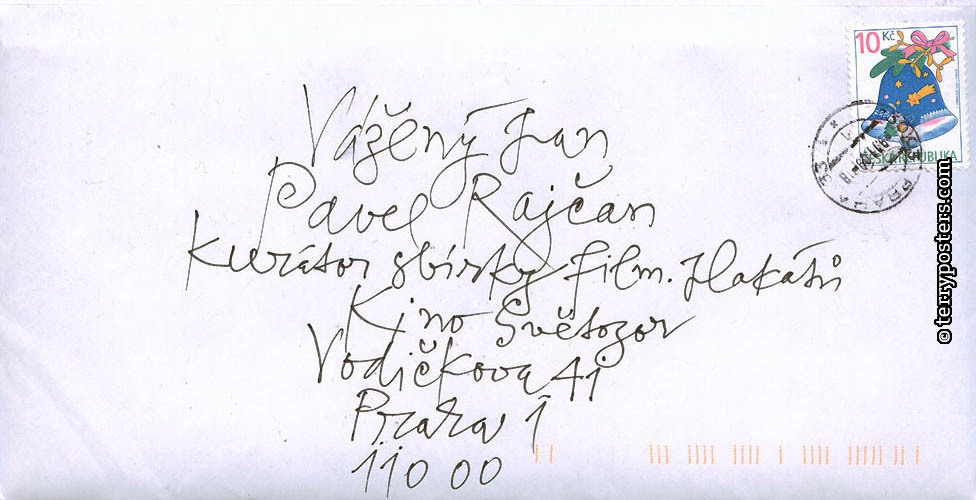 10 Kč
ČESKÁ REPUBLIKA
PRAHA
Vážený Pan
Pavel Rajčan
Kurátor sbírky film. plakátů
Kino Světozor
Vodičkova 41
Praha 1
110 00
© terryposters.com